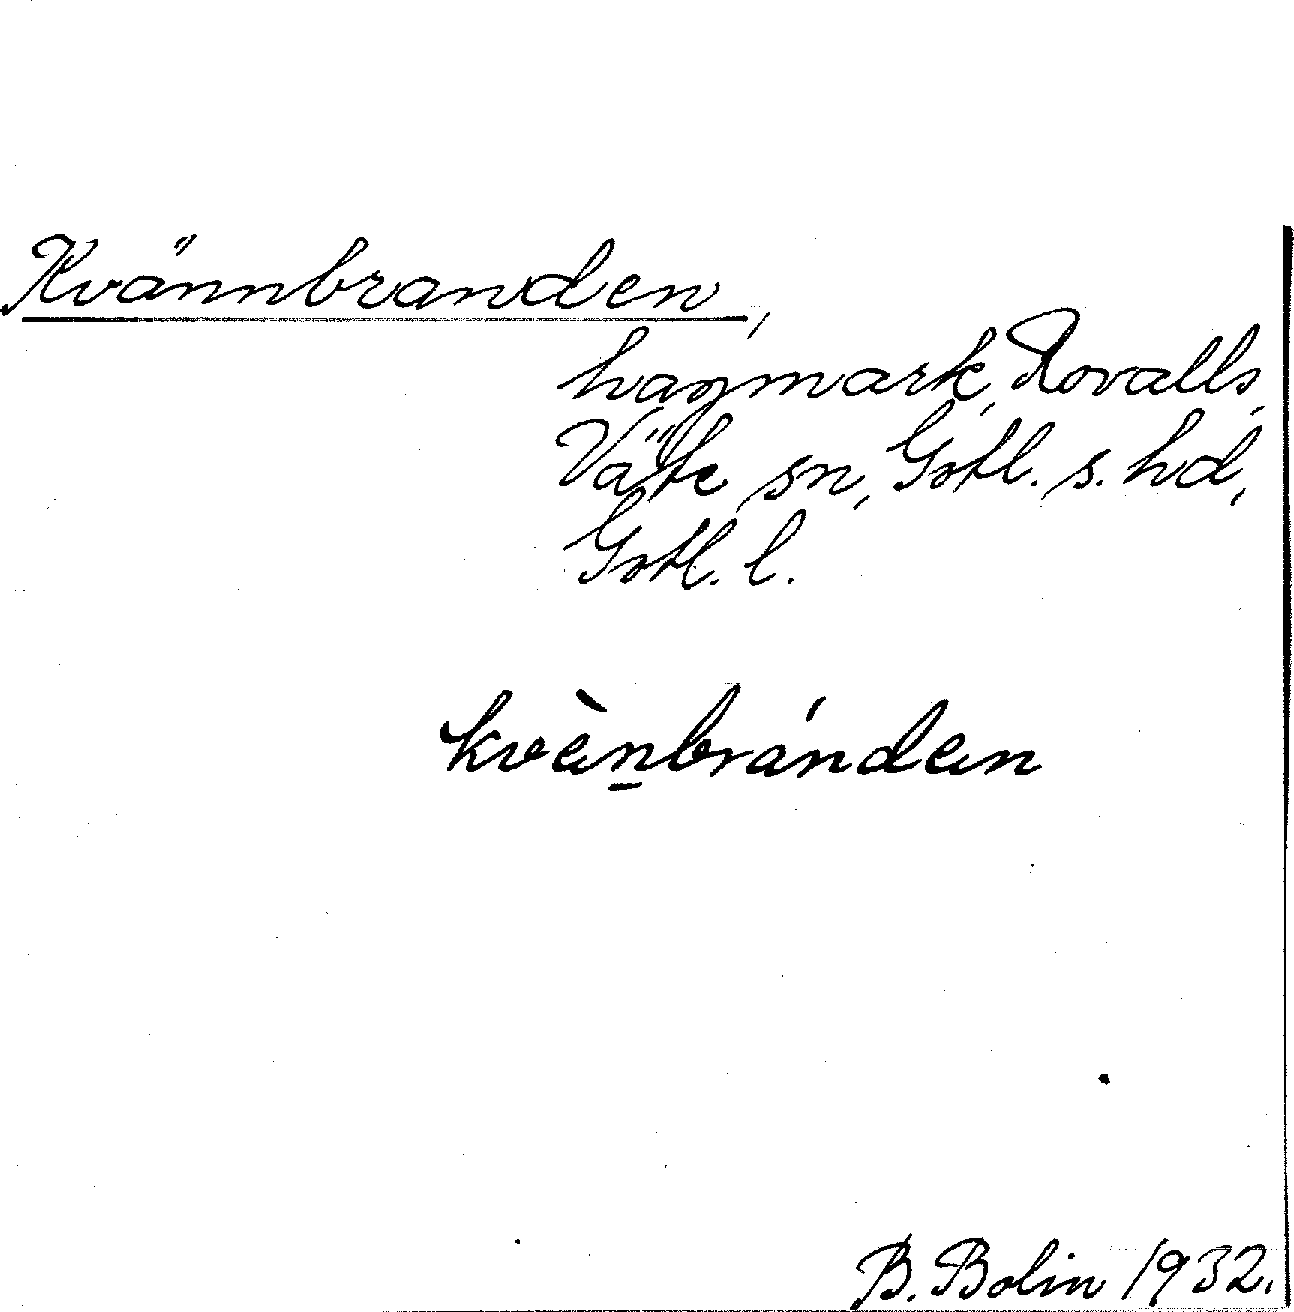 Kvännbranden,
hagmark, Rovalls,
Väte sn, Gotl. s. hd,
Gotl. l.
kvènbrándan
B. Bolin 1932.